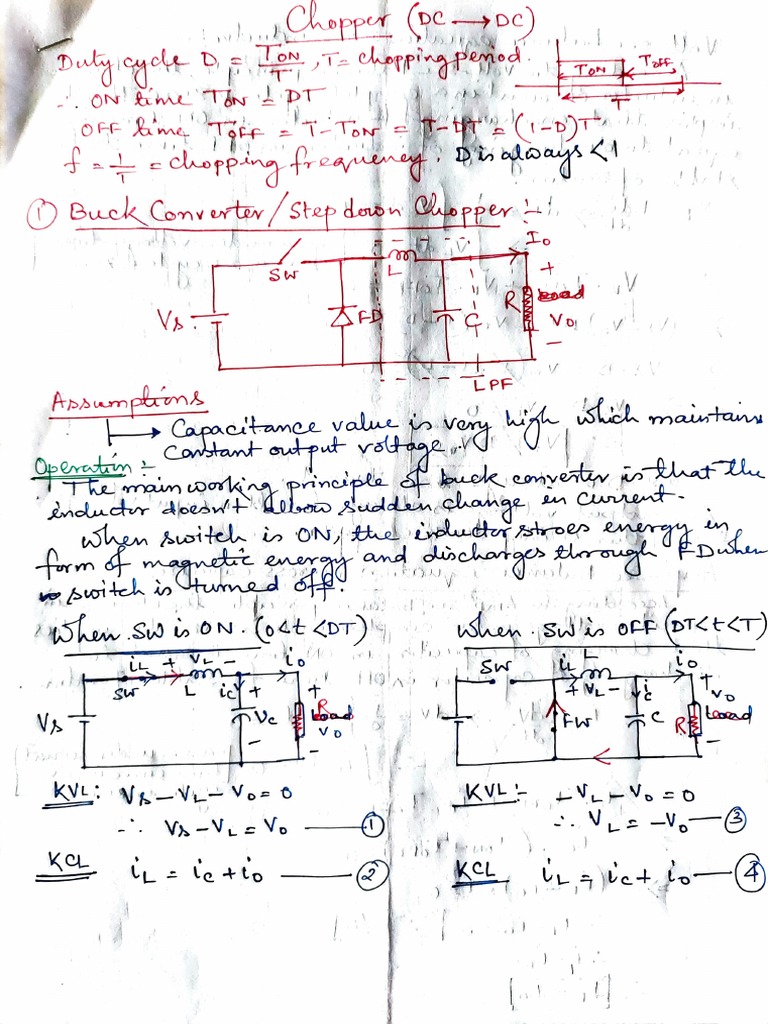 Chopper (DC → DC)
Duty cycle D = TON/T, T = chopping period
∴ ON time TON = DT
OFF time TOFF = T-TON = T-DT = (1-D)T
f = 1/T = chopping frequency. D is always < 1
TON Toff
T
① Buck Converter/Step down Chopper :-
SW L Io
+
Vs FD C R Load Vo
-
LPF
Assumptions
→ Capacitance value is very high which maintains
constant output voltage.
Operation :-
The main working principle of buck converter is that the
inductor doesn't allow sudden change in current.
When switch is ON, the inductor stroes energy in
form of magnetic energy and discharges through FD when
switch is turned off.
When SW is ON. (0<t<DT)
SW iL + VL - L io
Vs ic + Vc - + R Load Vo -
KVL: Vs - VL - Vo = 0
∴ Vs - VL = Vo ①
KCL iL = ic + io ②
When SW is OFF (DT<t<T)
SW iL L + VL - io
FW ic C + Vo R Load -
KVL:- -VL - Vo = 0
∴ VL = -Vo ③
KCL iL = ic + io ④